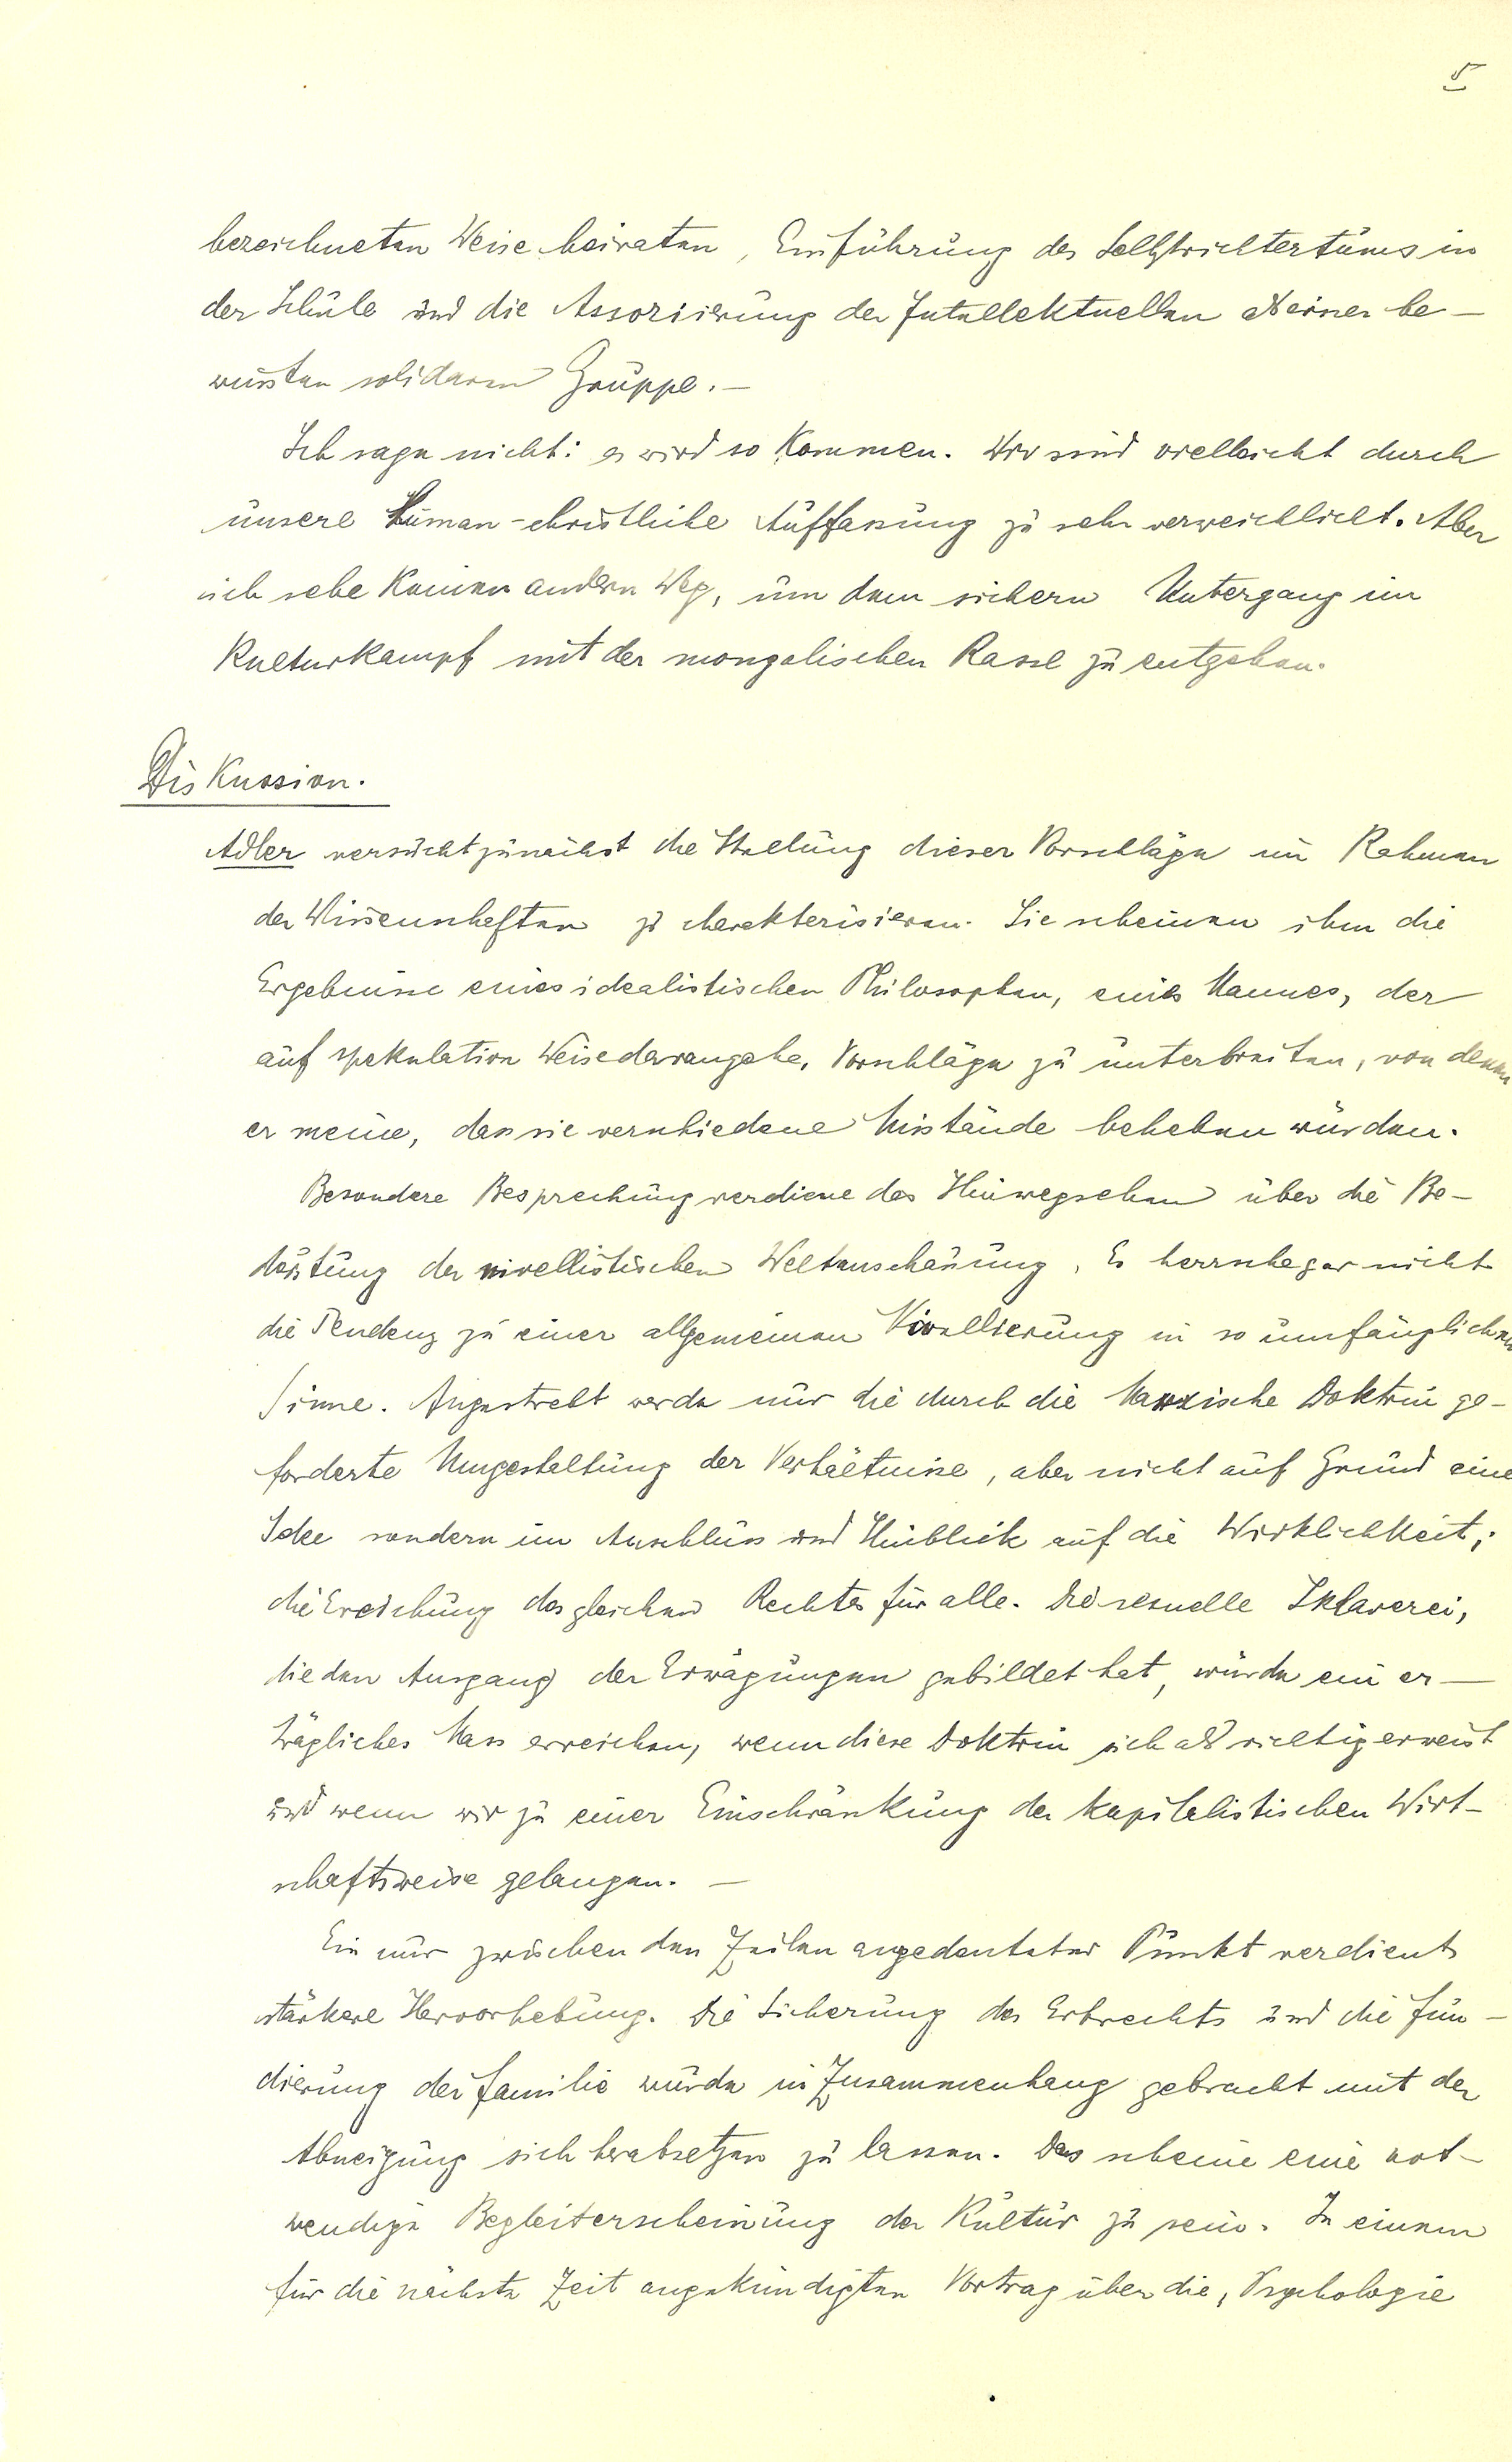 5
bezeichneten Weise heiraten, Einführung des Selbstrichtertums in
der Schule und die Assoziierung der Intellektuellen zu einer be-
wussten solidaren Gruppe.—
Ich sage nicht: es wird so kommen. Wir sind vielleicht durch
unsere human-christliche Auffassung zu sehr verweichlicht. Aber
ich sehe keinen andern Weg, um dem sichern Untergang im
Kulturkampf mit der mongolischen Rasse zu entgehen.
Diskussion.
Adler versucht zunächst die Stellung dieser Vorschläge im Rahmen
der Wissenschaften zu charakterisieren. Sie scheinen ihm die
Ergebnisse eines idealistischen Philosophen, eines Mannes, der
auf spekulative Weise darangehe, Vorschläge zu unterbreiten, von denen
er meine, dass sie verschiedene Misstände beheben würden.
Besondere Besprechung verdiene das Hinwegsehen über die Be-
deutung der nivellistischen Weltanschauung. Es herrsche gar nicht
die Tendenz zu einer allgemeinen Nivellierung in so umfänglichem
Sinne. Angestrebt werde nur die durch die Marxische Doktrin ge-
forderte Umgestaltung der Verhältnisse, aber nicht auf Grund einer
Idee sondern im Anschluss und Hinblick auf die Wirklichkeit;
die Erreichung des gleichen Rechtes für alle. Die sexuelle Sklaverei,
die den Ausgang der Erwägungen gebildet hat, würde ein er-
trägliches Mass erreichen, wenn diese Doktrin sich als richtig erweist
und wenn wir zu einer Einschränkung der kapitalistischen Wirt-
schaftsweise gelangen.—
Ein nur zwischen den Zeilen angedeuteter Punkt verdient
stärkere Hervorhebung. Die Sicherung des Erbrechts und die Fun-
dierung der Familie wurde in Zusammenhang gebracht mit der
Abneigung sich herabsetzen zu lassen. Das scheine eine not-
wendige Begleiterscheinung der Kultur zu sein. In einem
für die nächste Zeit angekündigten Vortrag über die "Psychologie